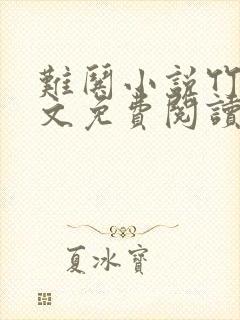 難關小說竹
文免費閱讀
夏冰寶